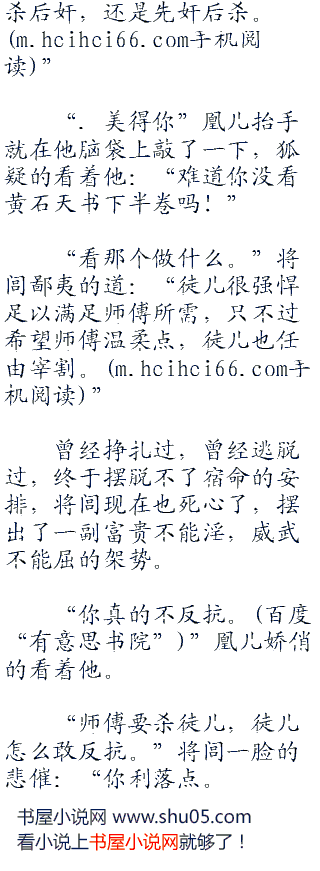 杀后奸，还是先奸后杀。
(m.hcihci66.com手机阅
读)”
“．美得你”凰儿抬手
就在他脑袋上敲了一下，狐
疑的看着他：“难道你没看
黄石天书下半卷吗！”
“看那个做什么。”将
闾鄙夷的道：“徒儿很强悍
足以满足师傅所需，只不过
希望师傅温柔点，徒儿也任
由宰割。(m.hcihci66.com手
机阅读)”
曾经挣扎过，曾经逃脱
过，终于摆脱不了宿命的安
排，将闾现在也死心了，摆
出了一副富贵不能淫，威武
不能屈的架势。
“你真的不反抗。(百度
“有意思书院”)”凰儿娇俏
的看着他。
“师傅要杀徒儿，徒儿
怎么敢反抗。”将闾一脸的
悲催：“你利落点。
书屋小说网 www.shu05.com
看小说上书屋小说网就够了！